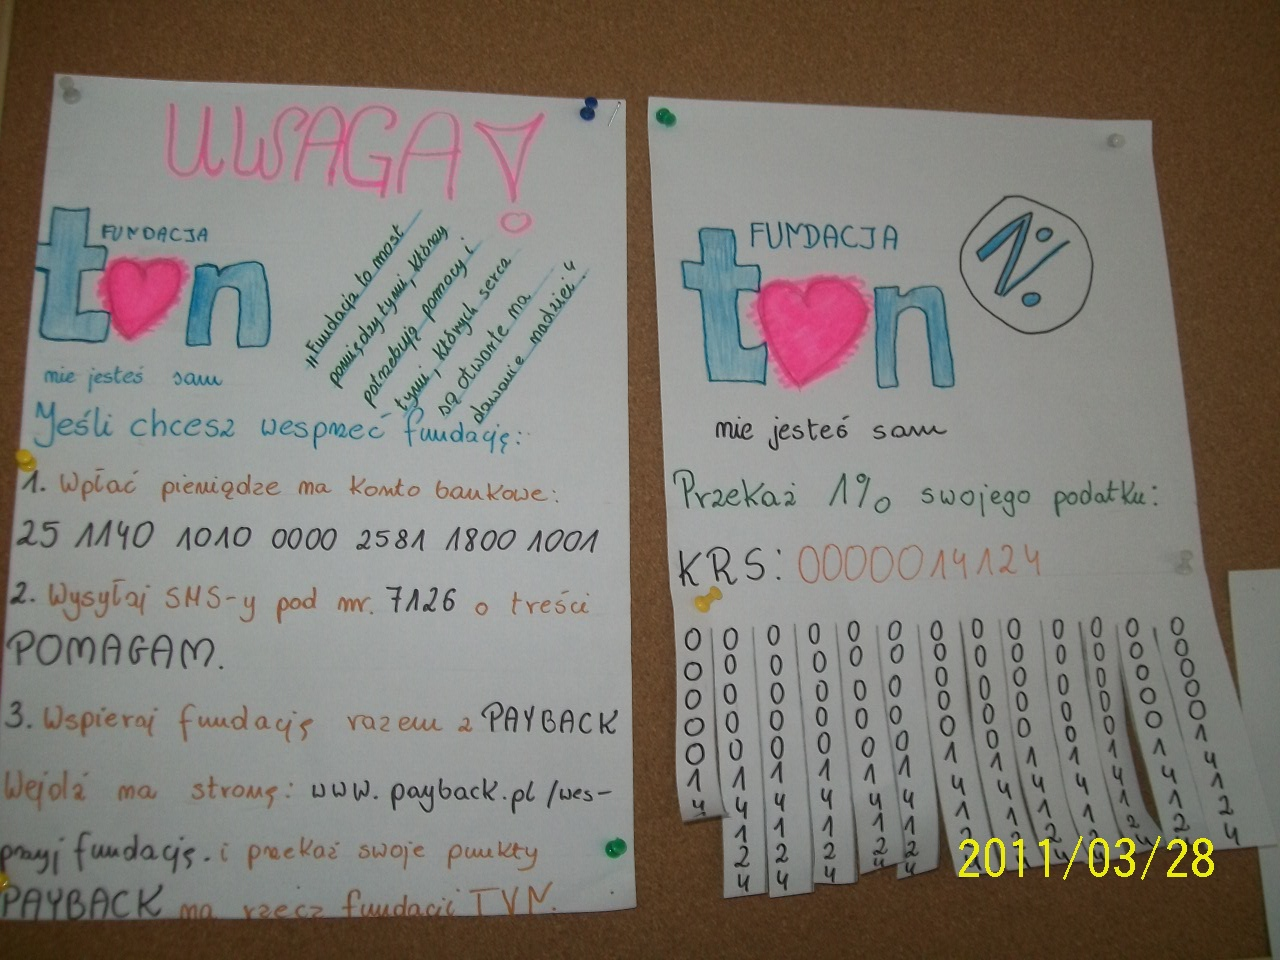 UWAGA!
FUNDACJA
t♥n
nie jesteś sam
„Fundacja to most
pomiędzy tymi, którzy
potrzebują pomocy i
tymi, których serca
są otwarte na
dawanie nadziei"
Jeśli chcesz wesprzeć fundację:
1. Wpłać pieniądze na konto bankowe:
25 1140 1010 0000 2581 1800 1001
2. Wysyłaj SMS-y pod nr. 7126 o treści
POMAGAM.
3. Wspieraj fundację razem z PAYBACK
Wejdź na stronę: www.payback.pl/wes-
przyj fundację. i przekaż swoje punkty
PAYBACK na rzecz fundacji TVN.
FUNDACJA
1%
t♥n
nie jesteś sam
Przekaż 1% swojego podatku:
KRS: 0000014124
0000014
0000014124
0000014124
0000014124
0000014124
0000014124
0000014124
0000014124
0000014124
0000014124
0000014124
0000014124
0000014124
2011/03/28